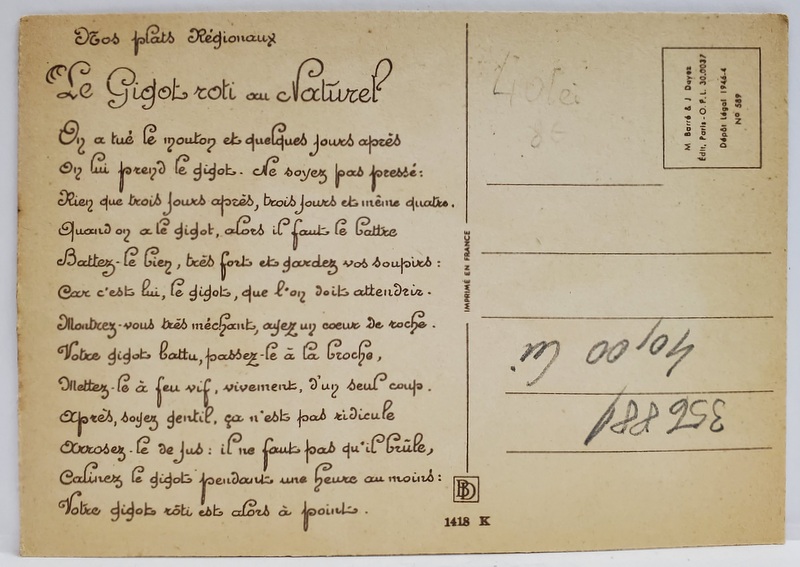 Nos plats Régionaux
Le Gigot roti au Naturel
On a tué le mouton et quelques jours après
On lui prend le gigot. Ne soyez pas pressé :
Rien que trois jours après, trois jours et même quatre.
Quand on a le gigot, alors il faut le battre
Battez-le bien, très fort et gardez vos soupirs :
Car c'est lui, le gigot, que l'on doit attendrir.
Montrez-vous très méchant, ayez un coeur de roche.
Votre gigot battu, passez-le à la broche,
Mettez-le à feu vif, vivement, d'un seul coup.
Après, soyez gentil, ça n'est pas ridicule
Arrosez-le de jus : il ne faut pas qu'il brûle,
Calinez le gigot pendant une heure au moins :
Votre gigot rôti est alors à point.
IMPRIMÉ EN FRANCE
BD
1418 K
40 lei
8€
M. Barré & J. Dayez
Édit. Paris - O. P. L. 30.0037
Dépôt Légal 1946-4
N° 589
40,00 lei
356881